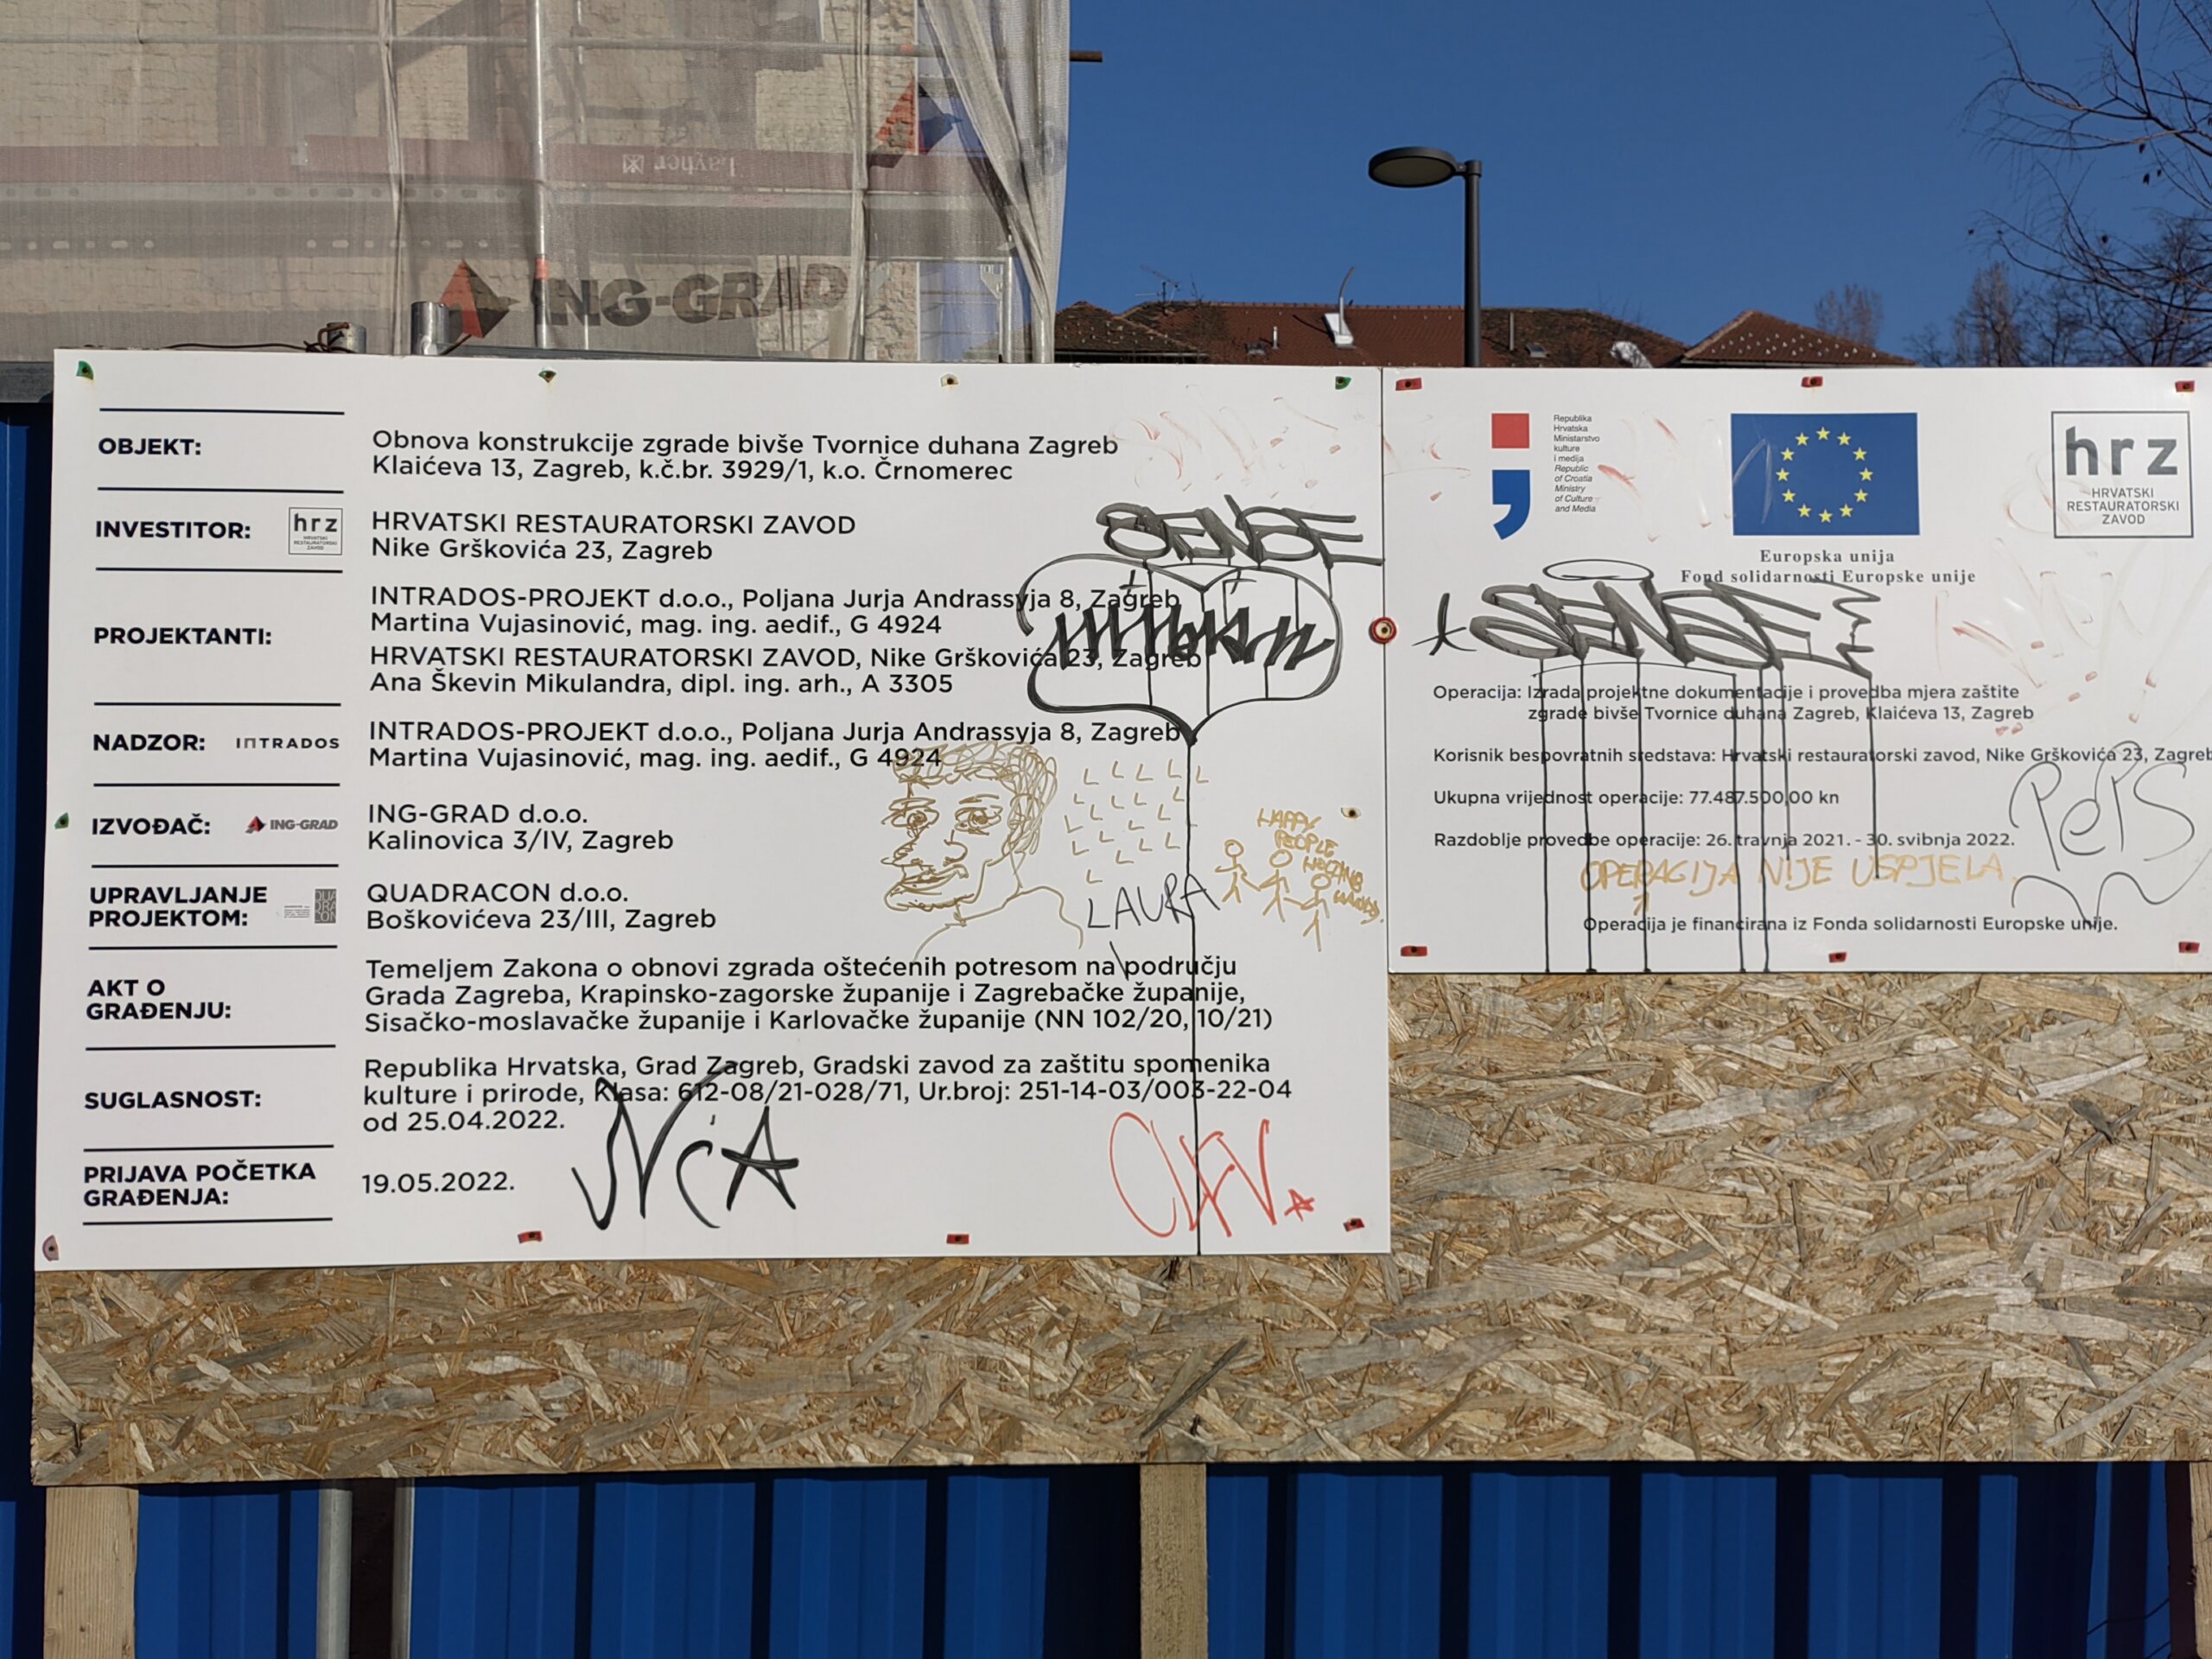 Layher
ING-GRAD
OBJEKT:
Obnova konstrukcije zgrade bivše Tvornice duhana Zagreb
Klaićeva 13, Zagreb, k.č.br. 3929/1, k.o. Črnomerec
INVESTITOR:
hrz
HRVATSKI
RESTAURATORSKI
ZAVOD
HRVATSKI RESTAURATORSKI ZAVOD
Nike Grškovića 23, Zagreb
PROJEKTANTI:
INTRADOS-PROJEKT d.o.o., Poljana Jurja Andrassyja 8, Zagreb
Martina Vujasinović, mag. ing. aedif., G 4924
HRVATSKI RESTAURATORSKI ZAVOD, Nike Grškovića 23, Zagreb
Ana Škevin Mikulandra, dipl. ing. arh., A 3305
NADZOR:
INTRADOS
INTRADOS-PROJEKT d.o.o., Poljana Jurja Andrassyja 8, Zagreb
Martina Vujasinović, mag. ing. aedif., G 4924
IZVOĐAČ:
ING-GRAD
ING-GRAD d.o.o.
Kalinovica 3/IV, Zagreb
UPRAVLJANJE
PROJEKTOM:
QUADRACON d.o.o.
Boškovićeva 23/III, Zagreb
AKT O
GRAĐENJU:
Temeljem Zakona o obnovi zgrada oštećenih potresom na području
Grada Zagreba, Krapinsko-zagorske županije i Zagrebačke županije,
Sisačko-moslavačke županije i Karlovačke županije (NN 102/20, 10/21)
SUGLASNOST:
Republika Hrvatska, Grad Zagreb, Gradski zavod za zaštitu spomenika
kulture i prirode, Klasa: 612-08/21-028/71, Ur.broj: 251-14-03/003-22-04
od 25.04.2022.
PRIJAVA POČETKA
GRAĐENJA:
19.05.2022.
SENSE
LAURA
HAPPY
PEOPLE
Republika
Hrvatska
Ministarstvo
kulture
i medija
Republic
of Croatia
Ministry
of Culture
and Media
Europska unija
Fond solidarnosti Europske unije
hrz
HRVATSKI
RESTAURATORSKI
ZAVOD
SENSE
Operacija: Izrada projektne dokumentacije i provedba mjera zaštite
zgrade bivše Tvornice duhana Zagreb, Klaićeva 13, Zagreb
Korisnik bespovratnih sredstava: Hrvatski restauratorski zavod, Nike Grškovića 23, Zagreb
Ukupna vrijednost operacije: 77.487.500,00 kn
Razdoblje provedbe operacije: 26. travnja 2021. - 30. svibnja 2022.
OPERACIJA NIJE USPJELA
Operacija je financirana iz Fonda solidarnosti Europske unije.
PePS